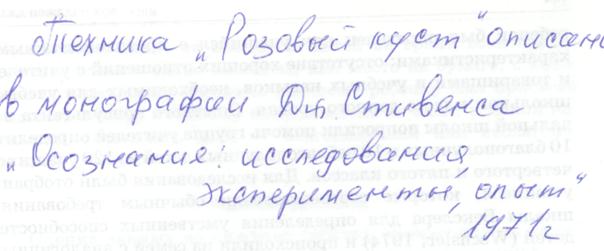 Техника „Розовый куст" описана
в монографии Дж. Стивенса
„Осознание: исследования,
эксперименты, опыт"
1971г